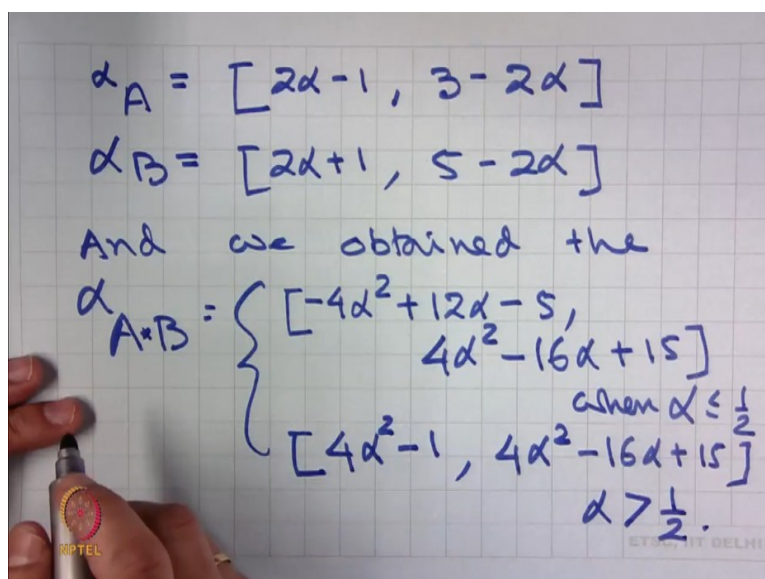 α_A = [2α-1, 3-2α]
α_B = [2α+1, 5-2α]
And we obtained the
α_{A*B} = { [-4α²+12α-5,
4α²-16α+15]
when α ≤ 1/2
[4α²-1, 4α²-16α+15]
α > 1/2.
NPTEL
ETSC, IIT DELHI